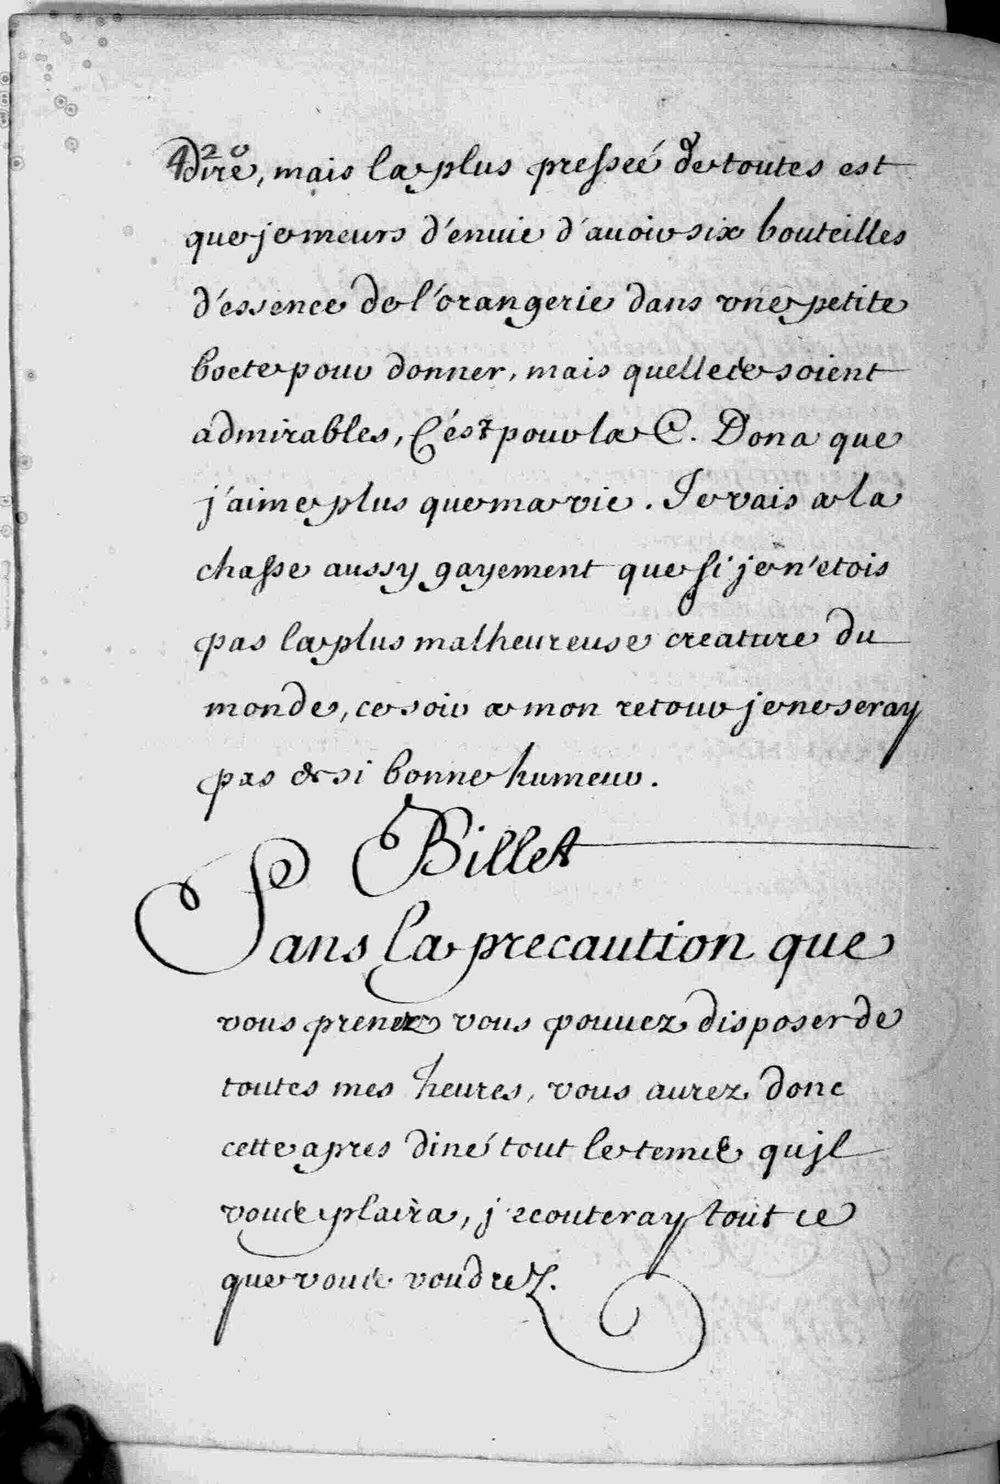 420
dire, mais la plus presseé de toutes est
que je meurs d'enuie d'auoir six bouteilles
d'essence de l'orangerie dans vne petite
boete pour donner, mais quelles soient
admirables, C'est pour la C. Dona que
j'aime plus que ma vie. Je vais a la
chasse aussy gayement que si je n'etois
pas la plus malheureuse creature du
monde, ce soir a mon retour je ne seray
pas de si bonne humeur.
Billet
Sans la precaution que
vous prenez vous pouuez disposer de
toutes mes heures, vous aurez donc
cette apres diné tout le tems qujl
vous plaira, j'ecouteray tout ce
que vous voudrez.